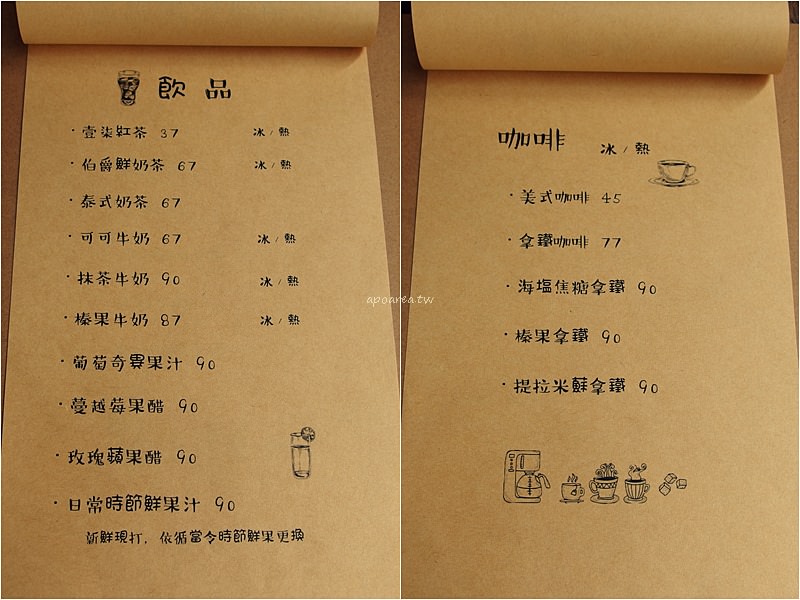 飲品
・壹柒紅茶 37 冰/熱
・伯爵鮮奶茶 67 冰/熱
・泰式奶茶 67
・可可牛奶 67 冰/熱
・抹茶牛奶 90 冰/熱
・榛果牛奶 87 冰/熱
・葡萄奇異果汁 90
・蔓越莓果醋 90
・玫瑰蘋果醋 90
・日常時節鮮果汁 90
新鮮現打，依循當令時節鮮果更換
咖啡 冰/熱
・美式咖啡 45
・拿鐵咖啡 77
・海塩焦糖拿鐵 90
・榛果拿鐵 90
・提拉米蘇拿鐵 90
apoarea.tw